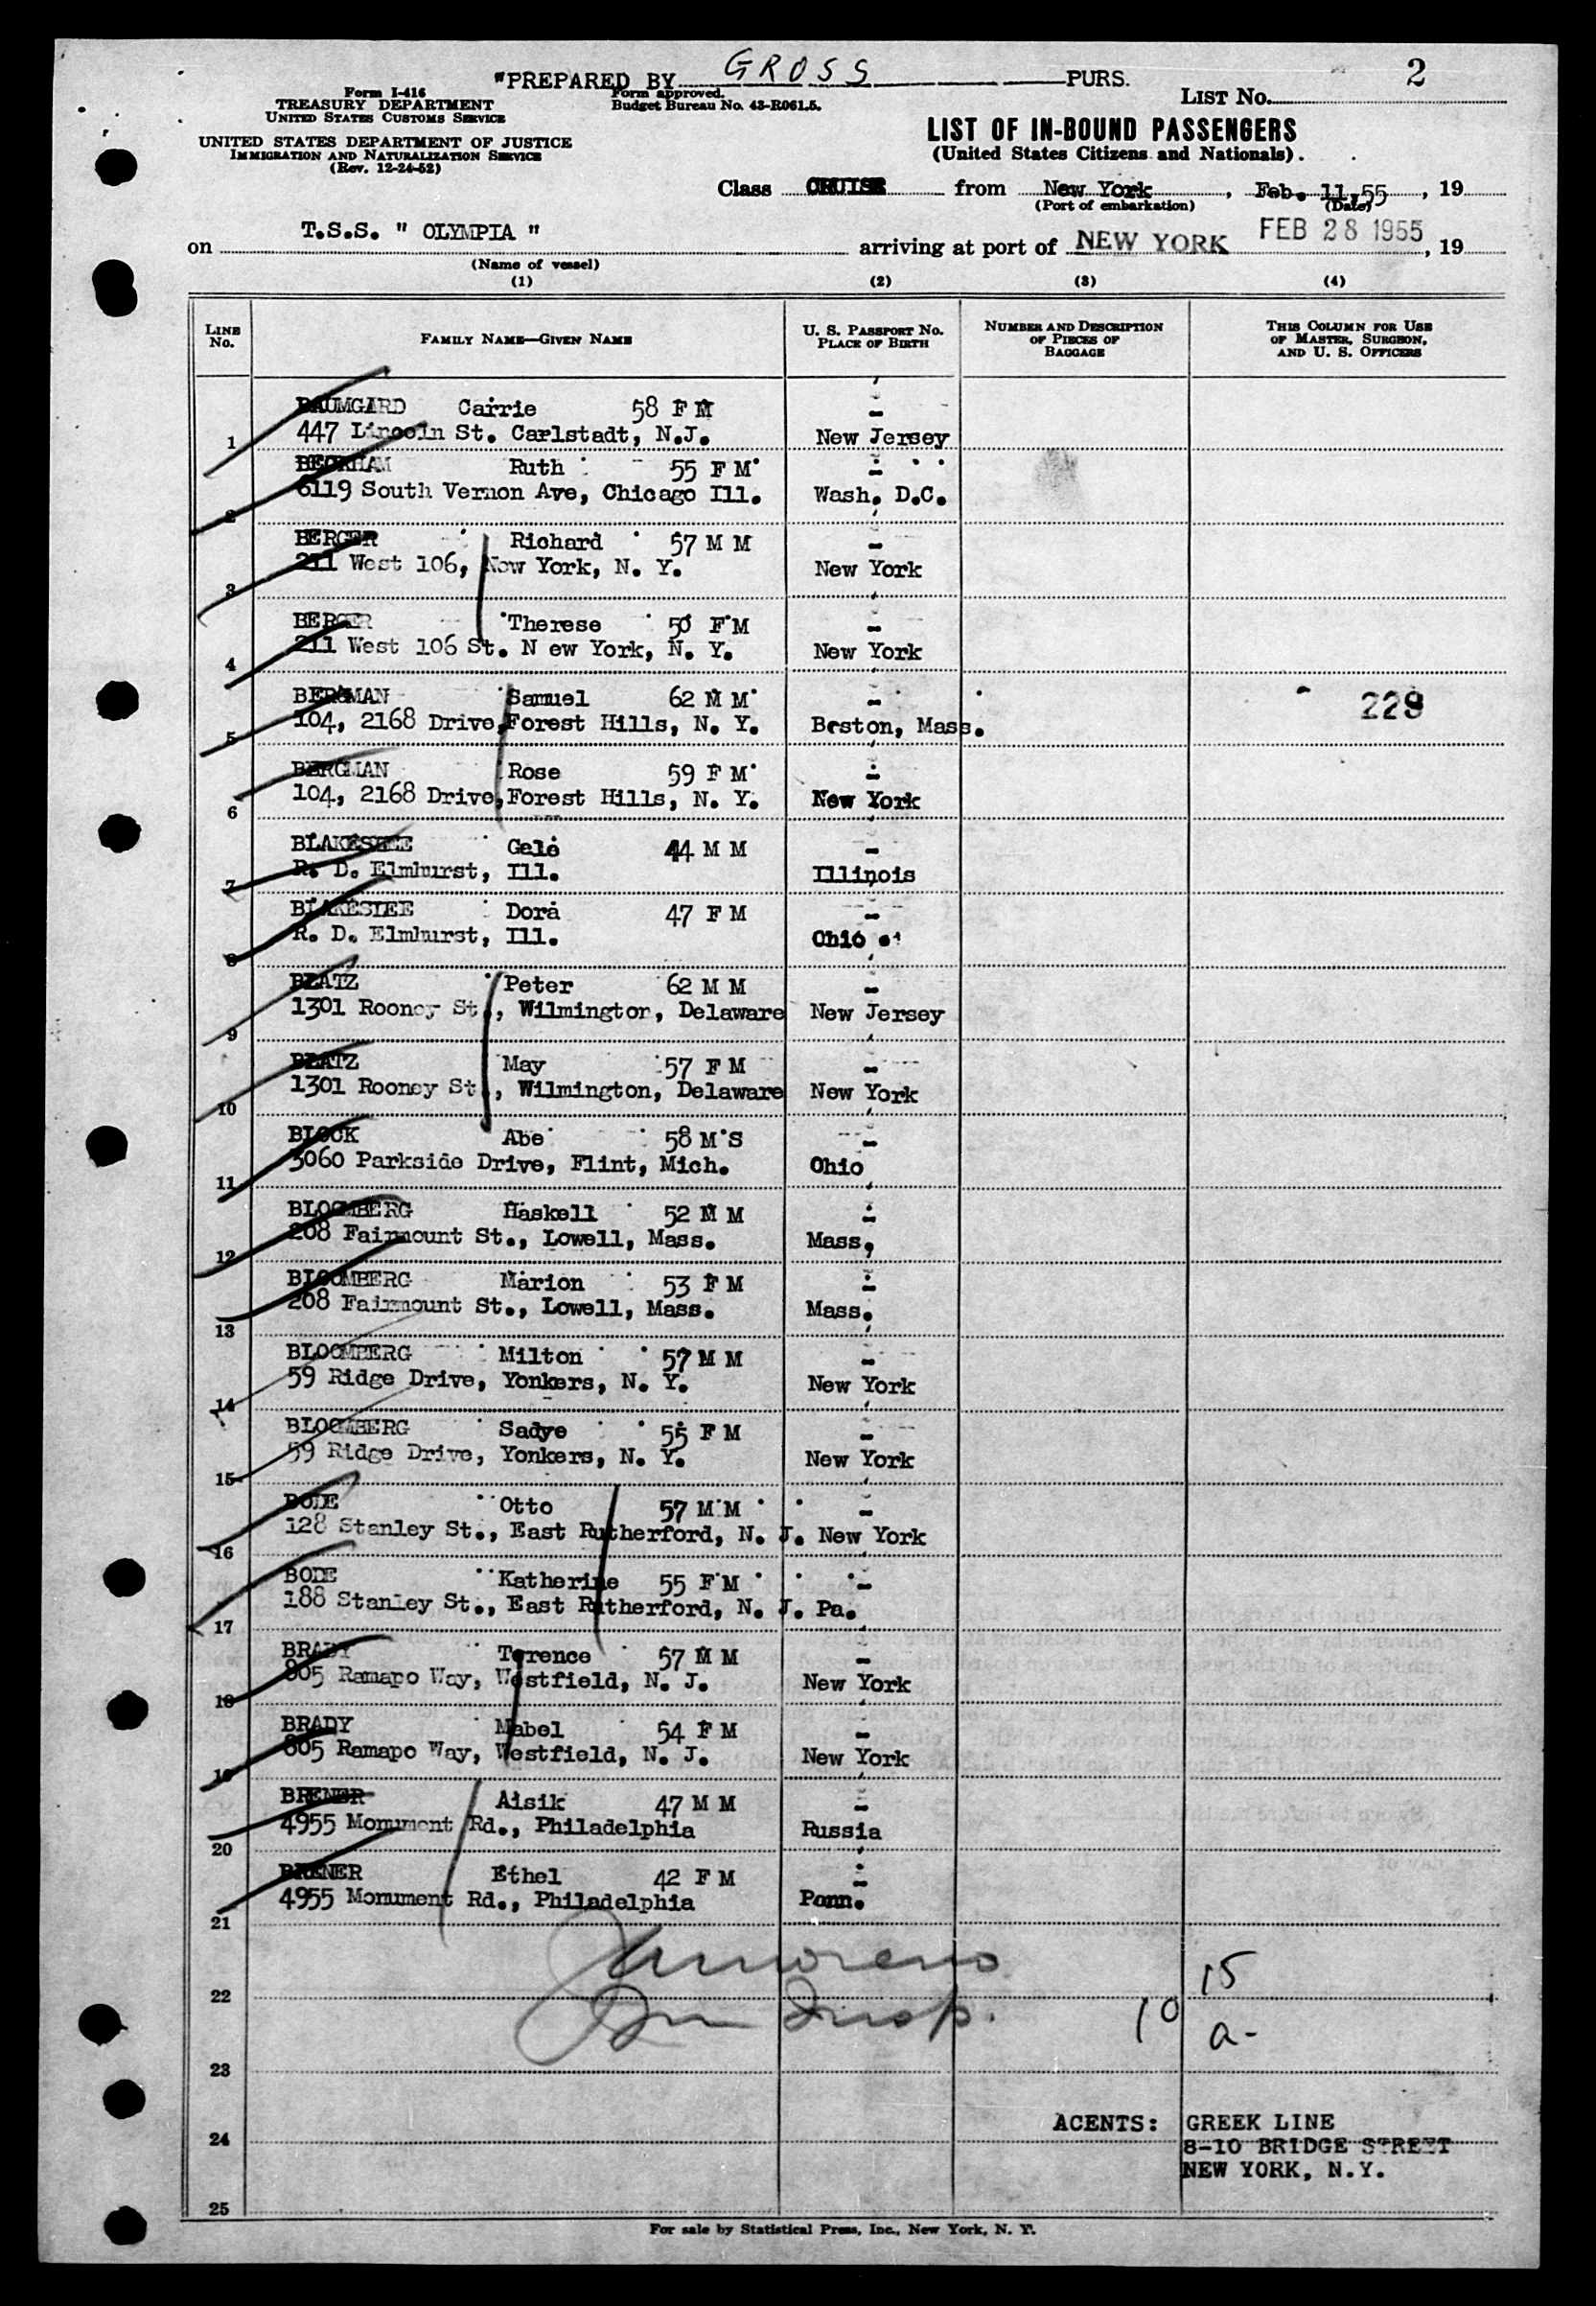 "PREPARED BY GROSS PURS.
2
LIST No.
Form I-416
TREASURY DEPARTMENT
UNITED STATES CUSTOMS SERVICE
Form approved.
Budget Bureau No. 43-R061.5.
UNITED STATES DEPARTMENT OF JUSTICE
IMMIGRATION AND NATURALIZATION SERVICE
(Rev. 12-24-52)
LIST OF IN-BOUND PASSENGERS
(United States Citizens and Nationals).
Class CRUISE from New York, Feb. 11,55, 19
(Port of embarkation) (Date)
on T.S.S. " OLYMPIA " arriving at port of NEW YORK FEB 28 1955, 19
(Name of vessel)
(1) (2) (3) (4)
LINE No. FAMILY NAME—GIVEN NAME U. S. PASSPORT No. PLACE OF BIRTH NUMBER AND DESCRIPTION OF PIECES OF BAGGAGE THIS COLUMN FOR USE OF MASTER, SURGEON, AND U. S. OFFICERS
BAUMGARD Carrie 58 F M -
1 447 Lincoln St. Carlstadt, N.J. New Jersey
BECKHAM Ruth 55 F M -
2 6119 South Vernon Ave, Chicago Ill. Wash. D.C.
BERGER Richard 57 M M -
3 211 West 106, New York, N. Y. New York
BERGER Therese 50 F M -
4 211 West 106 St. N ew York, N. Y. New York
BERGMAN Samuel 62 M M - 228
5 104, 2168 Drive, Forest Hills, N. Y. Boston, Mass.
BERGMAN Rose 59 F M -
6 104, 2168 Drive, Forest Hills, N. Y. New York
BLAKESLEE Gale 44 M M -
7 R. D. Elmhurst, Ill. Illinois
BLAKESLEE Dora 47 F M -
8 R. D. Elmhurst, Ill. Ohio
BLATZ Peter 62 M M -
9 1301 Rooney St., Wilmington, Delaware New Jersey
BLATZ May 57 F M -
10 1301 Rooney St., Wilmington, Delaware New York
BLOCK Abe 58 M S -
11 3060 Parkside Drive, Flint, Mich. Ohio
BLOOMBERG Haskell 52 M M -
12 208 Fairmount St., Lowell, Mass. Mass,
BLOOMBERG Marion 53 F M -
13 208 Fairmount St., Lowell, Mass. Mass.
BLOOMBERG Milton 57 M M -
14 59 Ridge Drive, Yonkers, N. Y. New York
BLOOMBERG Sadye 55 F M -
15 59 Ridge Drive, Yonkers, N. Y. New York
BODE Otto 57 M M -
16 128 Stanley St., East Rutherford, N. J. New York
BODE Katherine 55 F M -
17 188 Stanley St., East Rutherford, N. J. Pa.
BRADY Terence 57 M M -
18 805 Ramapo Way, Westfield, N. J. New York
BRADY Mabel 54 F M -
19 805 Ramapo Way, Westfield, N. J. New York
BRENER Aisik 47 M M -
20 4955 Monument Rd., Philadelphia Russia
BRENER Ethel 42 F M -
21 4955 Monument Rd., Philadelphia Penn.
15
22
Insp. 10 a-
23
24 AGENTS: GREEK LINE
8-10 BRIDGE STREET
NEW YORK, N.Y.
25
For sale by Statistical Press, Inc., New York, N. Y.